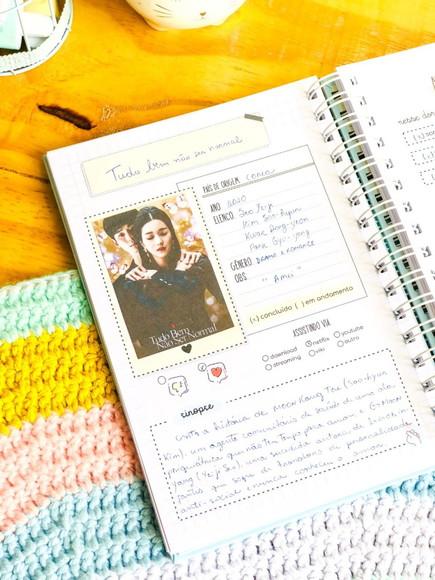 Tudo bem não ser normal
PAÍS DE ORIGEM Coreia
ANO 2020
ELENCO Seo Ye-ji
Kim Soo-hyun
Park Gyu-young
GÊNERO Drama e romance
OBS " Amei "
(x) concluído ( ) em andamento
Tudo Bem
Não Ser Normal
ASSISTINDO VIA
download netflix youtube
streaming viki outro
sinopse
Conta a história de Moon Kang Tae (Soo-hyun
Kim), um agente comunitário de saúde de uma ala
psiquiátrica que não tem tempo para amar, e Ko Moon
Young (Ye-ji Seo), uma sucedida autora de livros in
fantis que sofre de transtorno de personalidade
anti-social e nunca conheceu o amor.